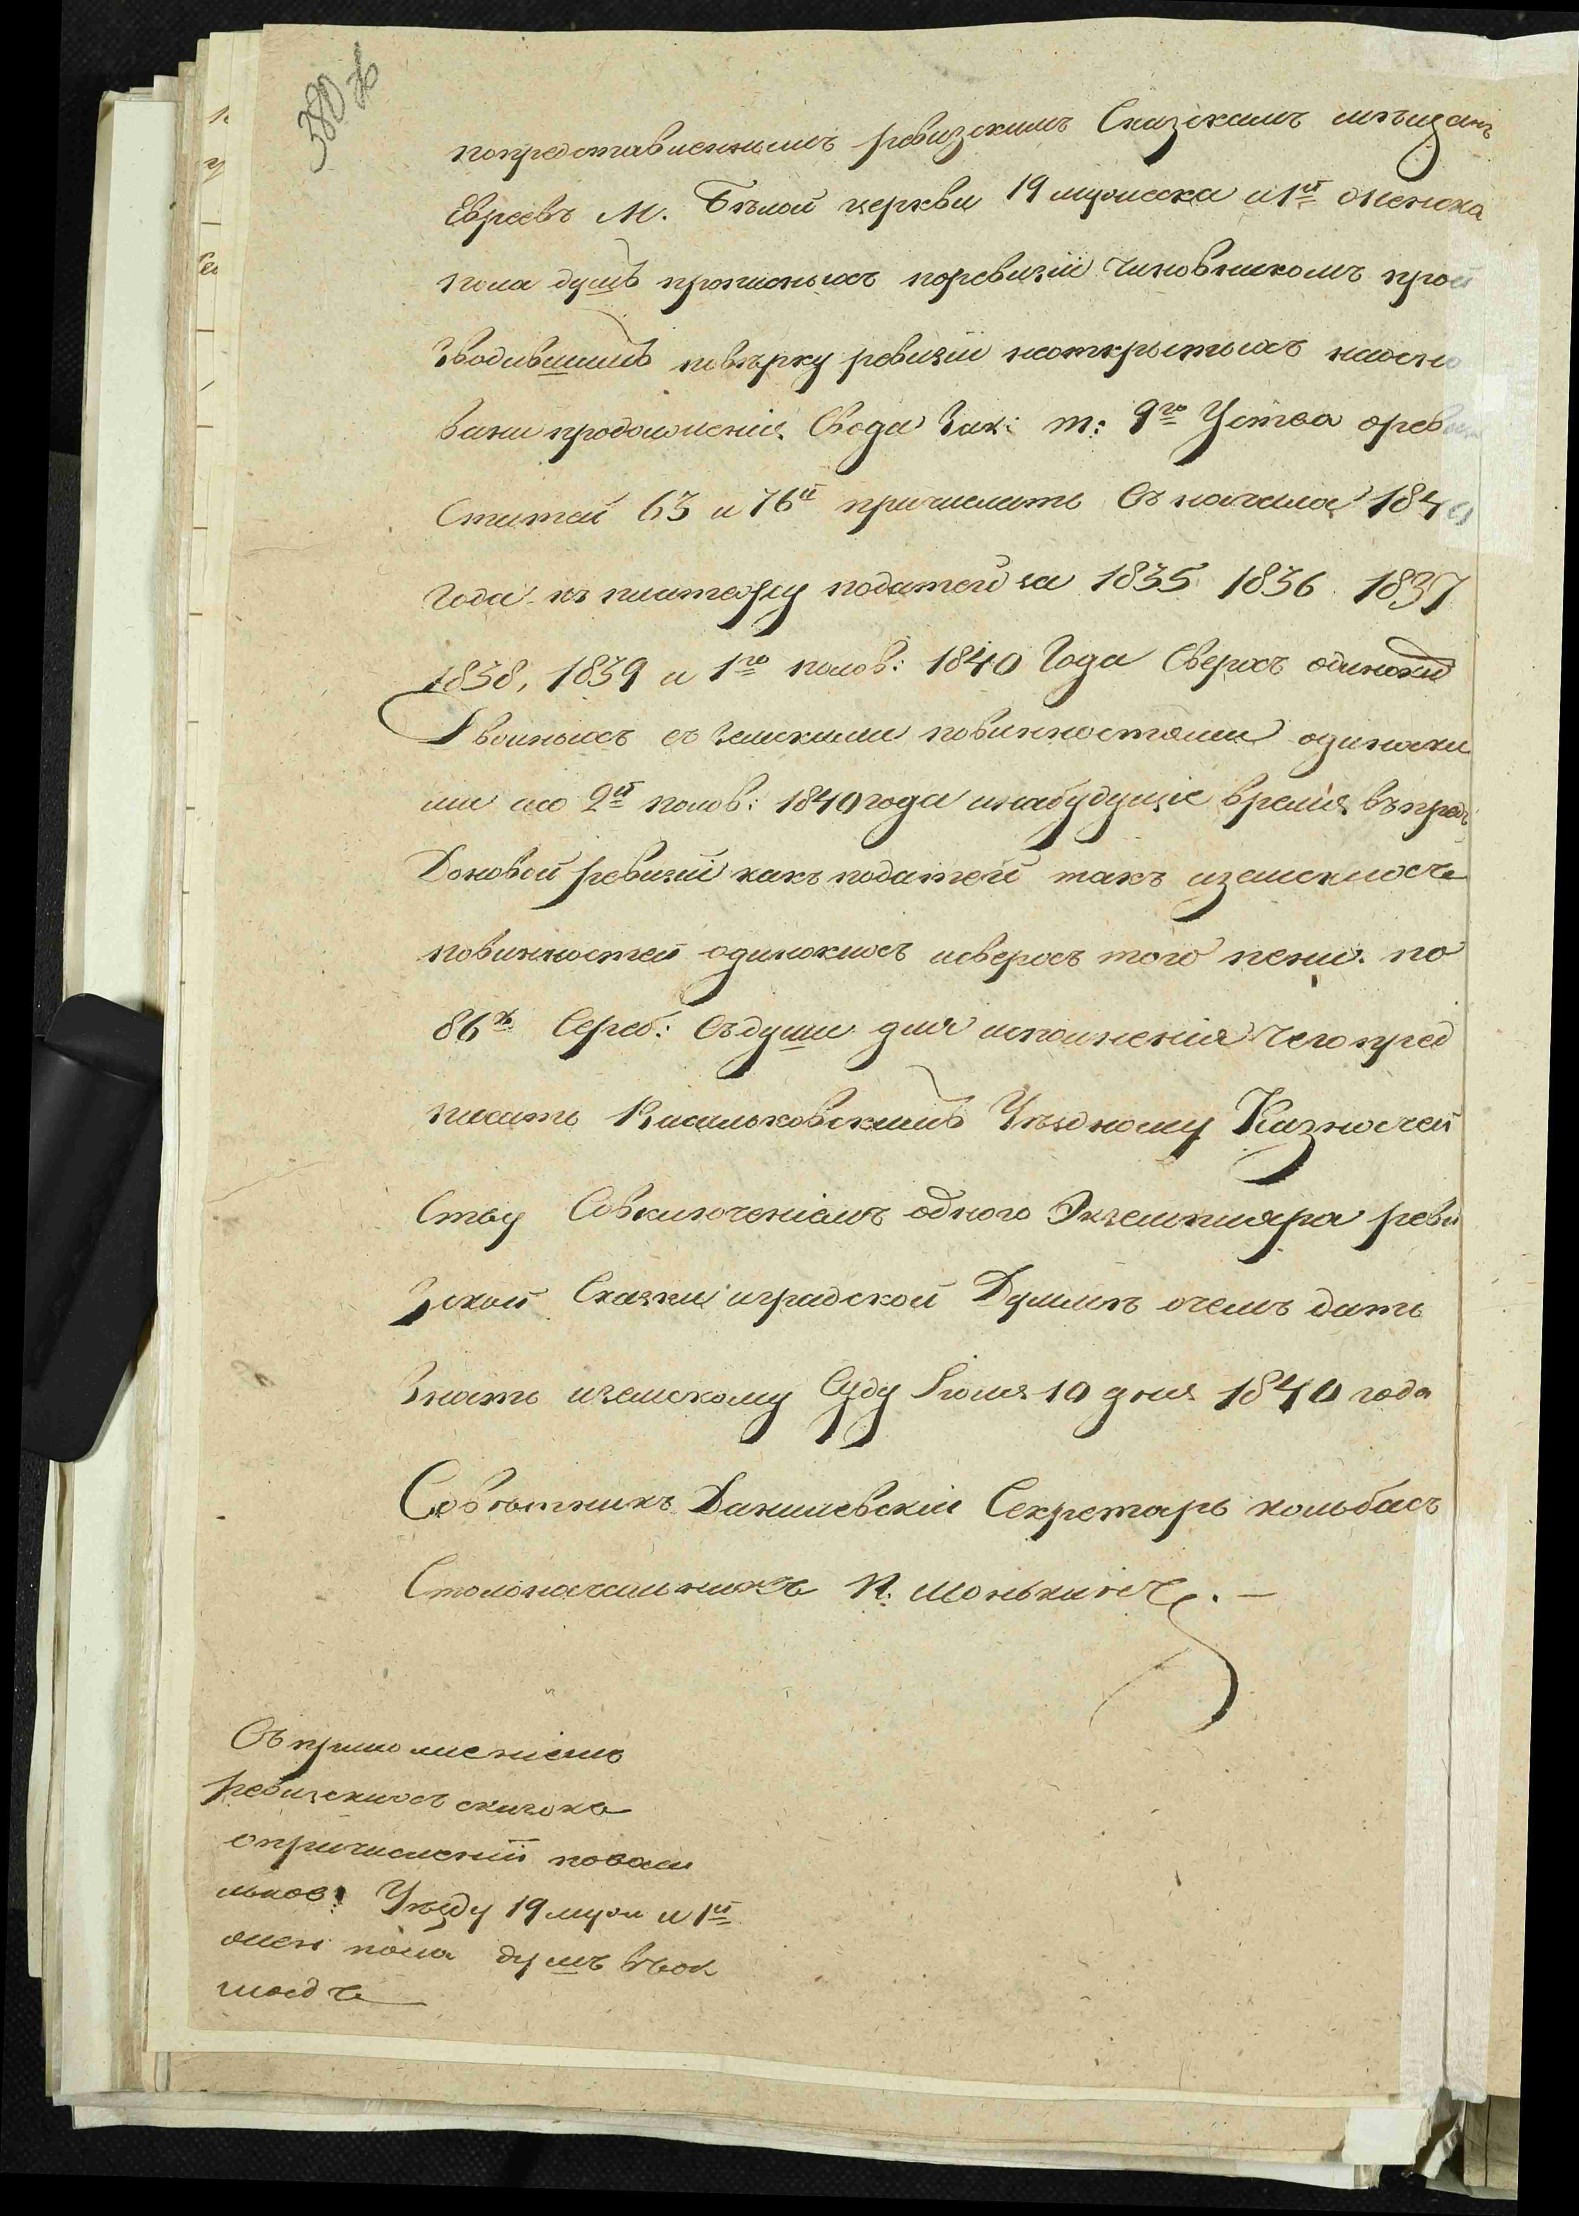 380 Ж
попредставленнымъ ревизскимъ Сказкамъ мѣщанъ
Евреевъ М. Бѣлой церкви 19 мужеска и 1й женска
пола душъ прописныхъ поревизіи Чиновникомъ прои
зводившимъ повѣрку ревизіи неоткрытыхъ наосно
вани продолженія Свода Зак: т: 9го Устава орев
Статей 63 и 76й причислить Съ начала 1840
Года къ платежу податей за 1835 1836 1837
1838, 1839 и 1го полов: 1840 Года Сверхъ одинокихъ
Двоиныхъ съ земскими повинностями одиноки
ми ино 2й полов: 1840 года инабудущіе время въпредъ
Доновой ревизіи какъ податей такъ иземскихъ
повинностей одинокихъ исверхъ того пени по
86 к Сереб: Съдуши для исполненія Чего пред
писать Васильковскимъ Уѣздному Казначей
Ству Совключеніемъ одного Экземпляра реви
зской Сказки иградской Думмѣ очемъ дать
Знать иземскому Суду Іюля 10 дня 1840 года
Совѣтникъ Данилевскій Секретарь кольбасъ
Столоначальникъ П: Шонькинъ. —
Съ приложеніемъ
ревизскихъ сказокъ
опричисленіи повасил
льков: Уѣзду 19 муж и 1й
жен пола душъ въок
ладъ